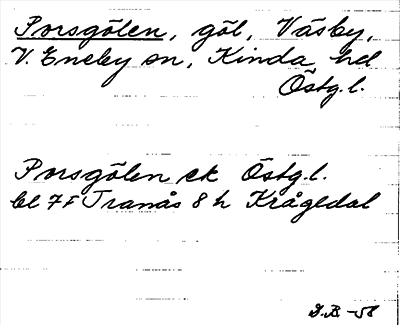 Porsgölen, göl, Väsby,
V. Eneby sn, Kinda hd
Östg.l.
Porsgölen ek Östg.l.
bl 7F Tranås 8 h Krågedal
G.B. -58